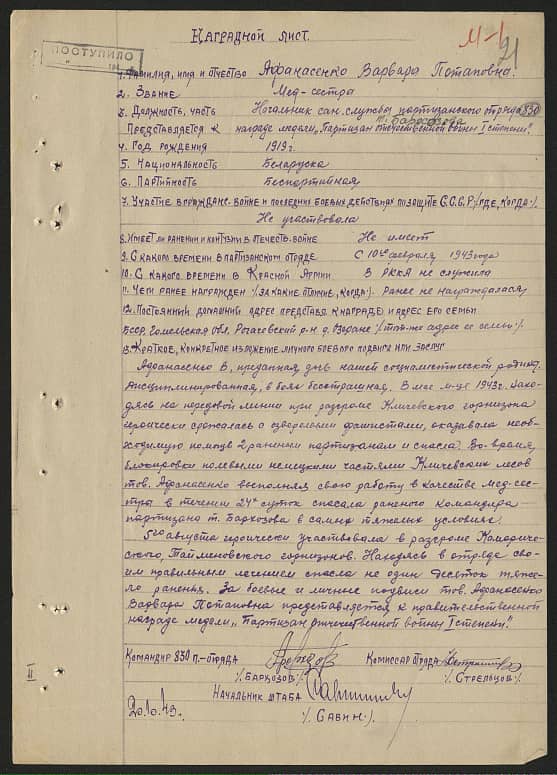 Наградной лист.
М-1
91
ПОСТУПИЛО
1. Фамилия, имя и отчество Афанасенко Варвара Потаповна.
2. Звание Мед-сестра
3. Должность, часть Начальник сан. службы партизанского отряда 830
представляется к награде медали „Партизан отечественной войны I степени".
4. Год рождения 1919 г.
5. Национальность Беларуска
6. Партийность Беспартийная
7. Участие в граждане. войне и последних боевых действиях по защите С.С.С.Р. /где, когда./.
Не участвовала
8. Имеет ли ранения и контузии в отечеств. войне Не имеет
9. С какого времени в партизанском отряде С 10го февраля 1943 года
10. С какого времени в Красной Армии В РККА не служила
11. Чем ранее награжден /за какие отличие, когда./. Ранее не награждалася
12. Постоянный домашний адрес представ. к награде и адрес его семьи
Бсср, Гомельская обл. Рогачевский р-н. д. /тот-же адрес и семьи./
13. Краткое, конкретное изложение личного боевого подвига или заслуг
Афанасенко В, преданная дочь нашей социалистической родины.
Дисциплинированная, в боях бесстрашная. В мае м-це 1943 г. нахо-
дясь на передовой линии при разгроме Кличевского горнизона
героически срожалась с озверелыми фашистами, оказывала необ-
ходимую помощь 2 раненым партизанам и спасла. Во-время
блокировки полевыми немецкими частями Кличевских лесов
тов. Афанасенко выполняя свою работу в качестве мед-сес-
тры в течении 24х суток спасала раненого командира
партизана т. Бархозова в самих тяжелых условиях.
5го августа героически участвовала в разгроме
ского, горнизонов. Находясь в отряде сво-
им правильным лечением спасла не один десяток тяже-
ло ранения. За боевые и личные подвиги тов. Афанасенко
Варвара Потаповна представляется к правительственной
награде медали „Партизан отечественной войны I степени."
Командир 830 п.-отряда Комиссар отряда
/.Барқозов./ /.Стрельцов./
Начальник штаба
20.10.43. /.Савин./
II